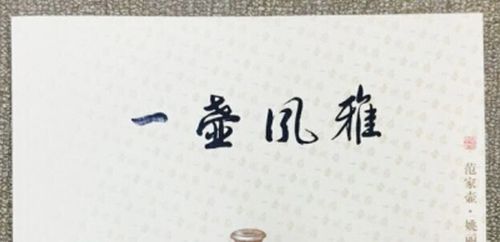 一壶风雅
范家壶·姚